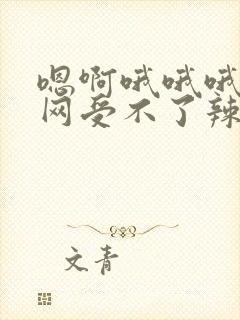 嗯啊哦哦哦
网受不了辣
文青